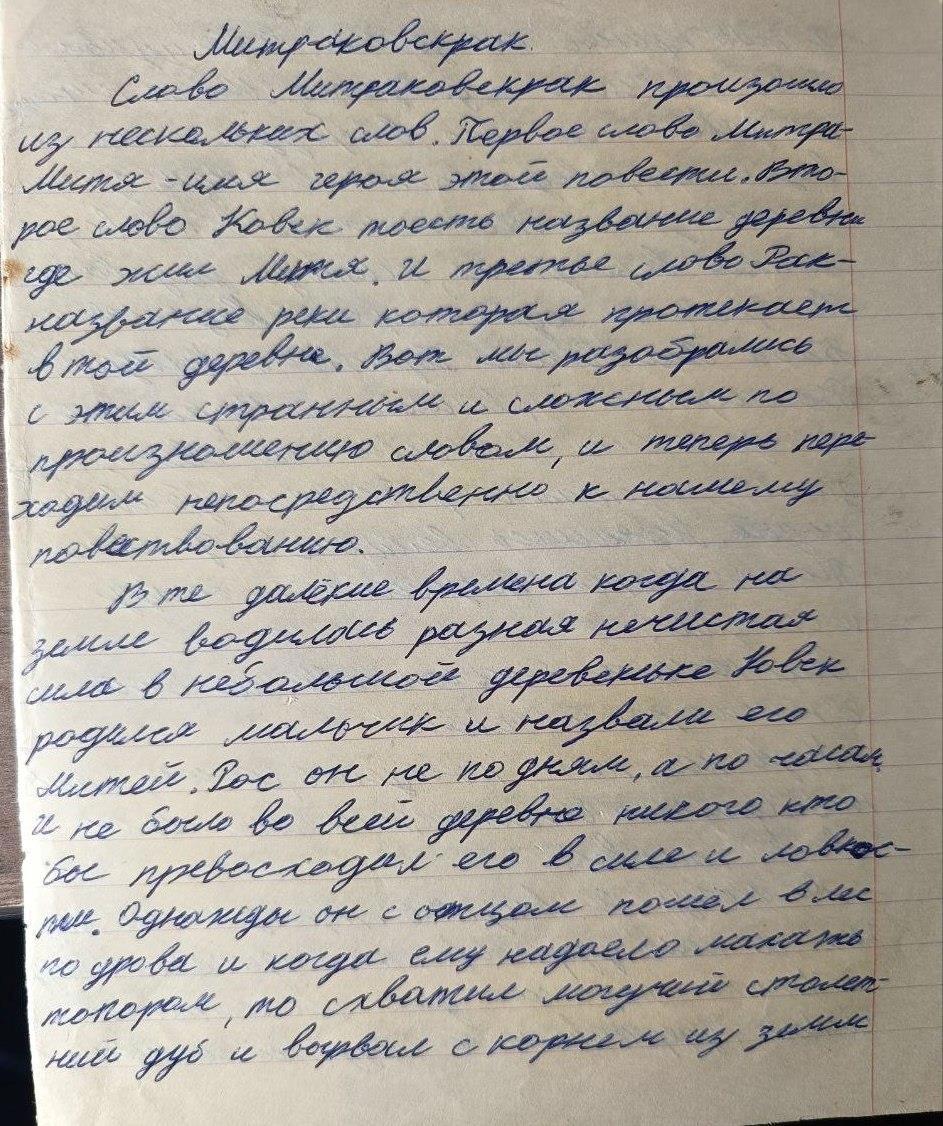 Митраковскрак.
Слово Митраковскрак произошло
из нескольких слов. Первое слово Митра-
Митя - имя героя этой повести. Вто-
рое слово Ковск тоесть название деревни
где жил Митя. И третье слово Рак-
название реки которая протекает
в той деревне. Вот мы разобрались
с этим странным и сложеным по
произношению словом, и теперь пере-
ходим непосредственно к нашему
повествованию.
В те далёкие времена когда на
земле водилась разная нечистая
сила в небольшой деревеньке Ковск
родился мальчик и назвали его
Митей. Рос он не по дням, а по часам,
И не было во всей деревне никого кто
бы превосходил его в силе и ловкос-
ти. Однажды он с отцом пошёл в лес
по дрова и когда ему надоело махать
топором, то схватил могучий столет-
ний дуб и вырвал с корнем из земли